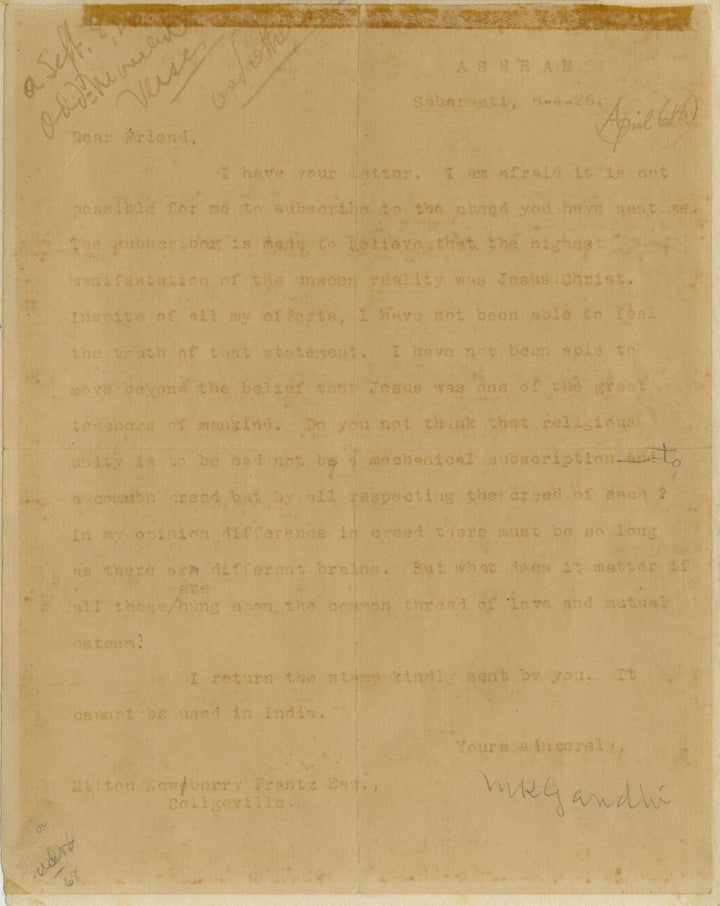 a Sept. 8,
verse
ASHRAM
Sabarmati, 6-4-26.
(April 6th)
Dear Friend,
I have your letter. I am afraid it is not
possible for me to subscribe to the creed you have sent me.
The subscriber is made to believe that the highest
manifestation of the unseen reality was Jesus Christ.
Inspite of all my efforts, I have not been able to feel
the truth of that statement. I have not been able to
move beyond the belief that Jesus was one of the great
teachers of mankind. Do you not think that religious
unity is to be had not by a mechanical subscription and to
a common creed but by all respecting the creed of each ?
In my opinion, difference in creed there must be so long
as there are different brains. But what does it matter if
all these/are hung upon the common thread of love and mutual
esteem?
I return the stamp kindly sent by you. It
cannot be used in India.
Yours sincerely,
MKGandhi
Milton Newsberry Frantz Esq.,
Collgeville.